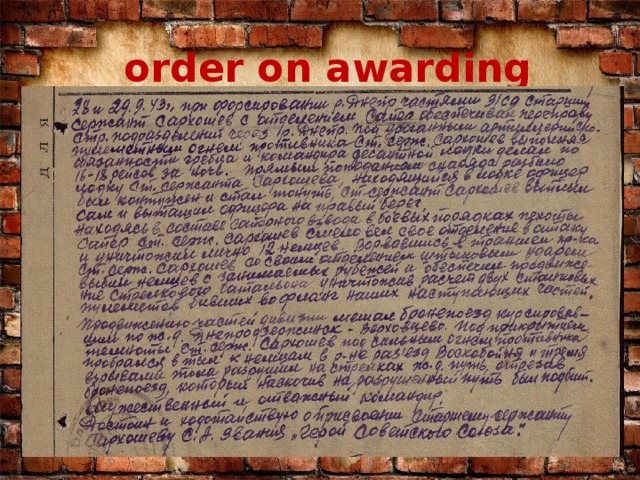 order on awarding
ДЛЯ
28 и 29.9.43г. при форсировании р. Днепр частями 91сд старший
сержант Сархошев с отделением сапер обеспечивал переправу
стр. подразделений через р. Днепр. Под ураганным артиллерийско-
пулеметным огнем противника ст. серж. Сархошев выполняя
обязанности гребца и командира десантной лодки делал по
16-18 рейсов за ночь. Прямым попаданием снаряда разбило
лодку ст. сержанта Сархошева, находящийся в лодке офицер
был контужен и стал тонуть, ст. сержант Сархошев выплыл
сам и вытащил офицера на правый берег.
Находясь в составе саперного взвода в боевых порядках пехоты
сапер ст. серж. Сархошев смело вел свое отделение в атаку
и уничтожил лично 12 немцев. Ворвавшись в траншеи пр-ка
ст. серж. Сархошев со своим отделением штыковым ударом
выбил немцев с занимаемых рубежей и обеспечил продвиже-
ние стрелкового батальона уничтожив расчет двух станковых
пулеметов бивших во фланг наших наступающих частей.
Продвижению частей дивизии мешал бронепоезд курсировав-
ший по ж.д. Днепродзержинск - Верховцево. Под прикрытием
темноты ст. серж. Сархошев под сильным огнем противника
пробрался в тыл к немцам в р-не разъезд Воскобойня и тремя
взрывами тола разрушил на стрелках ж.д. путь, отрезав
бронепоезд, который наскочив на разрушенный путь был подбит.
Мужественный и отважный командир.
Достоин и ходатайствую о присвоении старшему сержанту
Сархошеву С.А. звания „Герой Советского Союза".